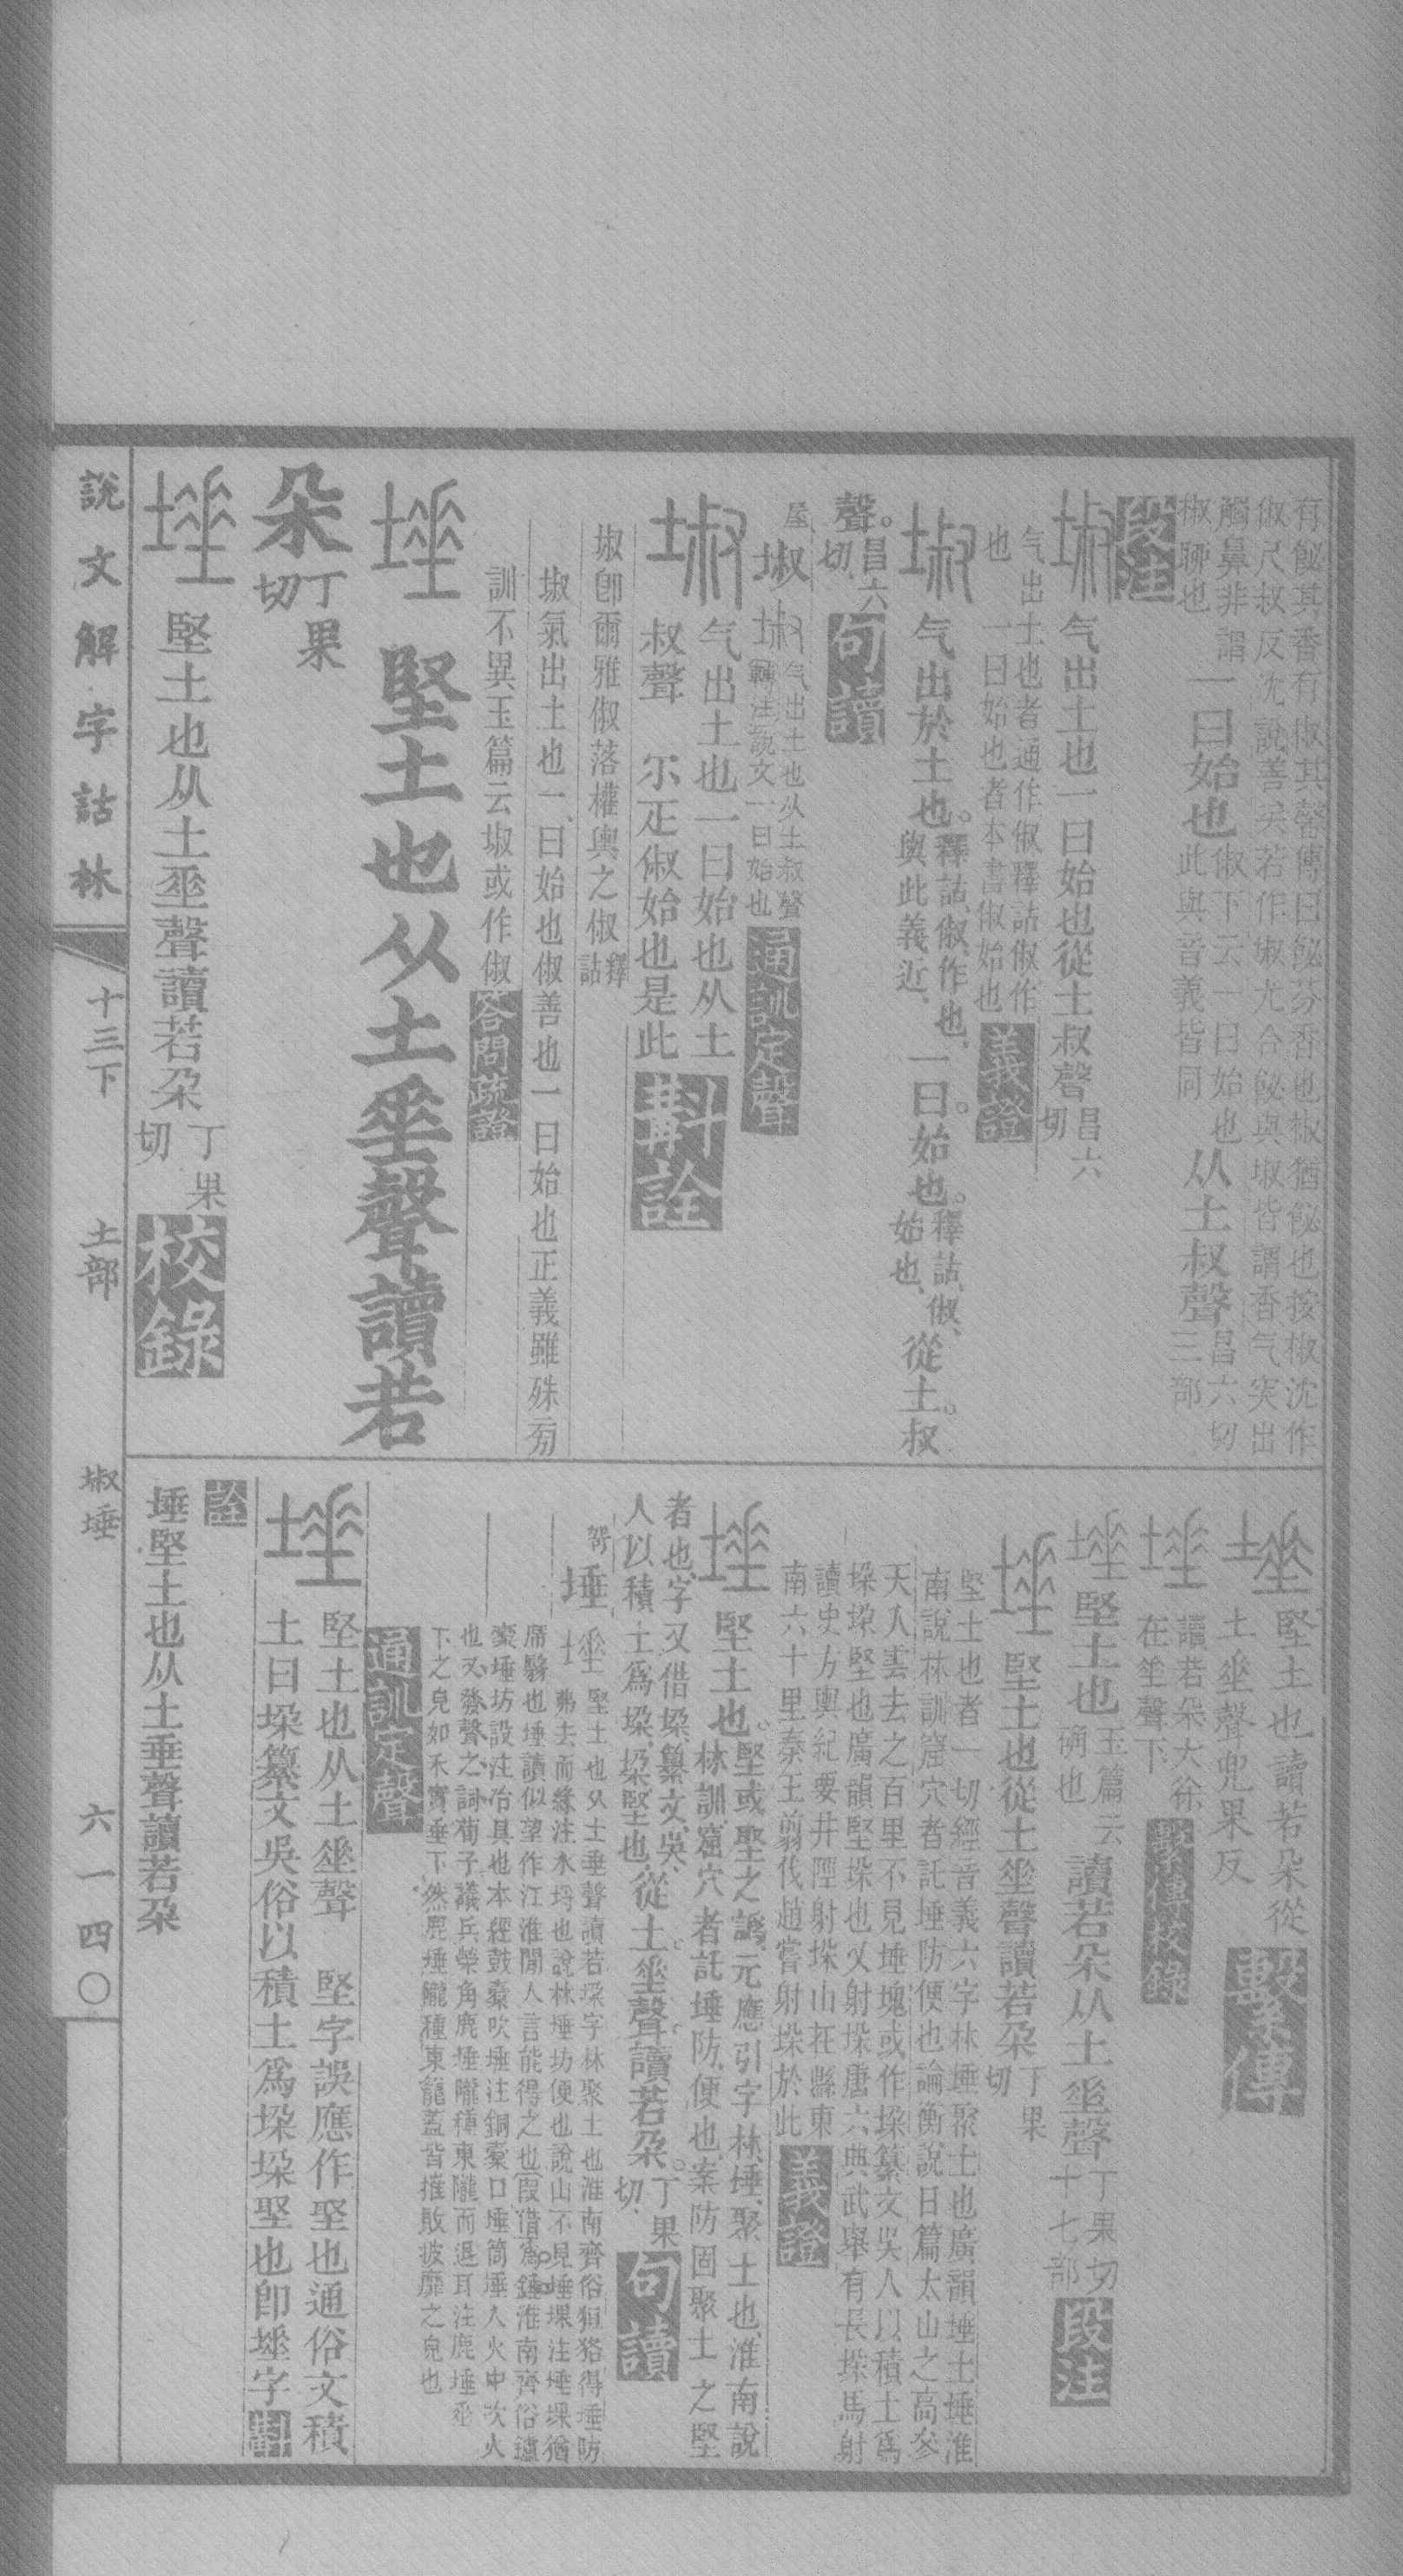 有飶其香有椒其馨傳曰飶芬香也椒猶飶也按椒沈作
俶尺叔反沈說善矣若作埱尤合飶與埱皆謂香气突出
觸鼻非謂
椒聊也
一曰始也
俶下云一曰始也
此與音義皆同
从土叔聲
昌六切
三部
段注
气出土也一曰始也從土叔聲
昌六
切
气出土也者通作俶釋詁俶作
也 一曰始也者本書俶始也
義證
气出於土也。
釋詁、俶、作也、
與此義近、
一曰。始也。
釋詁、俶、
始也、
從土。叔
聲。
昌六
切、
句讀
屋
埱
气出土也从土叔聲
轉注說文一曰始也
通訓定聲
气出土也一曰始也从土
叔聲 尔疋俶始也是此
斠詮
埱卽爾雅俶落權輿之俶
釋
詁
埱氣出土也一曰始也俶善也一曰始也正義雖殊㫄
訓不異玉篇云埱或作俶
答問疏證
堅土也从土𡍮聲讀若
朵
丁果
切
堅土也从土𡍮聲讀若朵
丁果
切
校錄
說文解字詁林
十三下
土部
埱埵
六一四〇
堅土也讀若朵從
土𡍮聲兜果反
繫傳
讀若朵大徐
在𡍮聲下
繫傳校錄
堅土也
玉篇云
䂵也
讀若朵从土𡍮聲
丁果切
十七部
段注
堅土也從土𡍮聲讀若朵
丁果
切
堅土也者一切經音義六字林埵聚土也廣韻埵土埵淮
南說林訓窟穴者託埵防便也論衡說日篇太山之高參
天入雲去之百里不見埵塊或作垜纂文吳人以積土爲
垜垜堅也廣韻堅垜也又射垜唐六典武舉有長垜馬射
讀史方輿紀要井陘射垜山在縣東
南六十里秦王翦伐趙嘗射垜於此
義證
堅土也。
堅或聖之譌、元應引字林、埵、聚土也、淮南說
林訓、窟穴者託埵防、便也、案防固聚土之堅
者也、字又借垜、纂文、吳、
人以積土爲垜、垜堅也、
從土。𡍮聲。讀若朵。
丁果
切、
句讀
埵
堅土也从土垂聲讀若朶字林聚土也淮南齊俗狟狢得埵防
弗去而緣注水埒也說林埵坊便也說山不見埵堁注埵堁猶
席翳也埵讀似望作江淮閒人言能得之也假借爲錘淮南齊俗鑪
橐埵坊設注冶具也本經鼓橐吹埵注銅橐口埵筒埵入火中吹火
也又發聲之詞荀子議兵榮角鹿埵隴種東隴而退耳注鹿埵垂
下之皃如禾實垂下然鹿埵隴種東籠蓋皆摧敗披靡之皃也
通訓定聲
堅土也从土𡍮聲 堅字誤應作聖也通俗文積
土曰垜纂文吳俗以積土爲垜垜堅也卽埵字
斠
詮
埵堅土也从土垂聲讀若朶